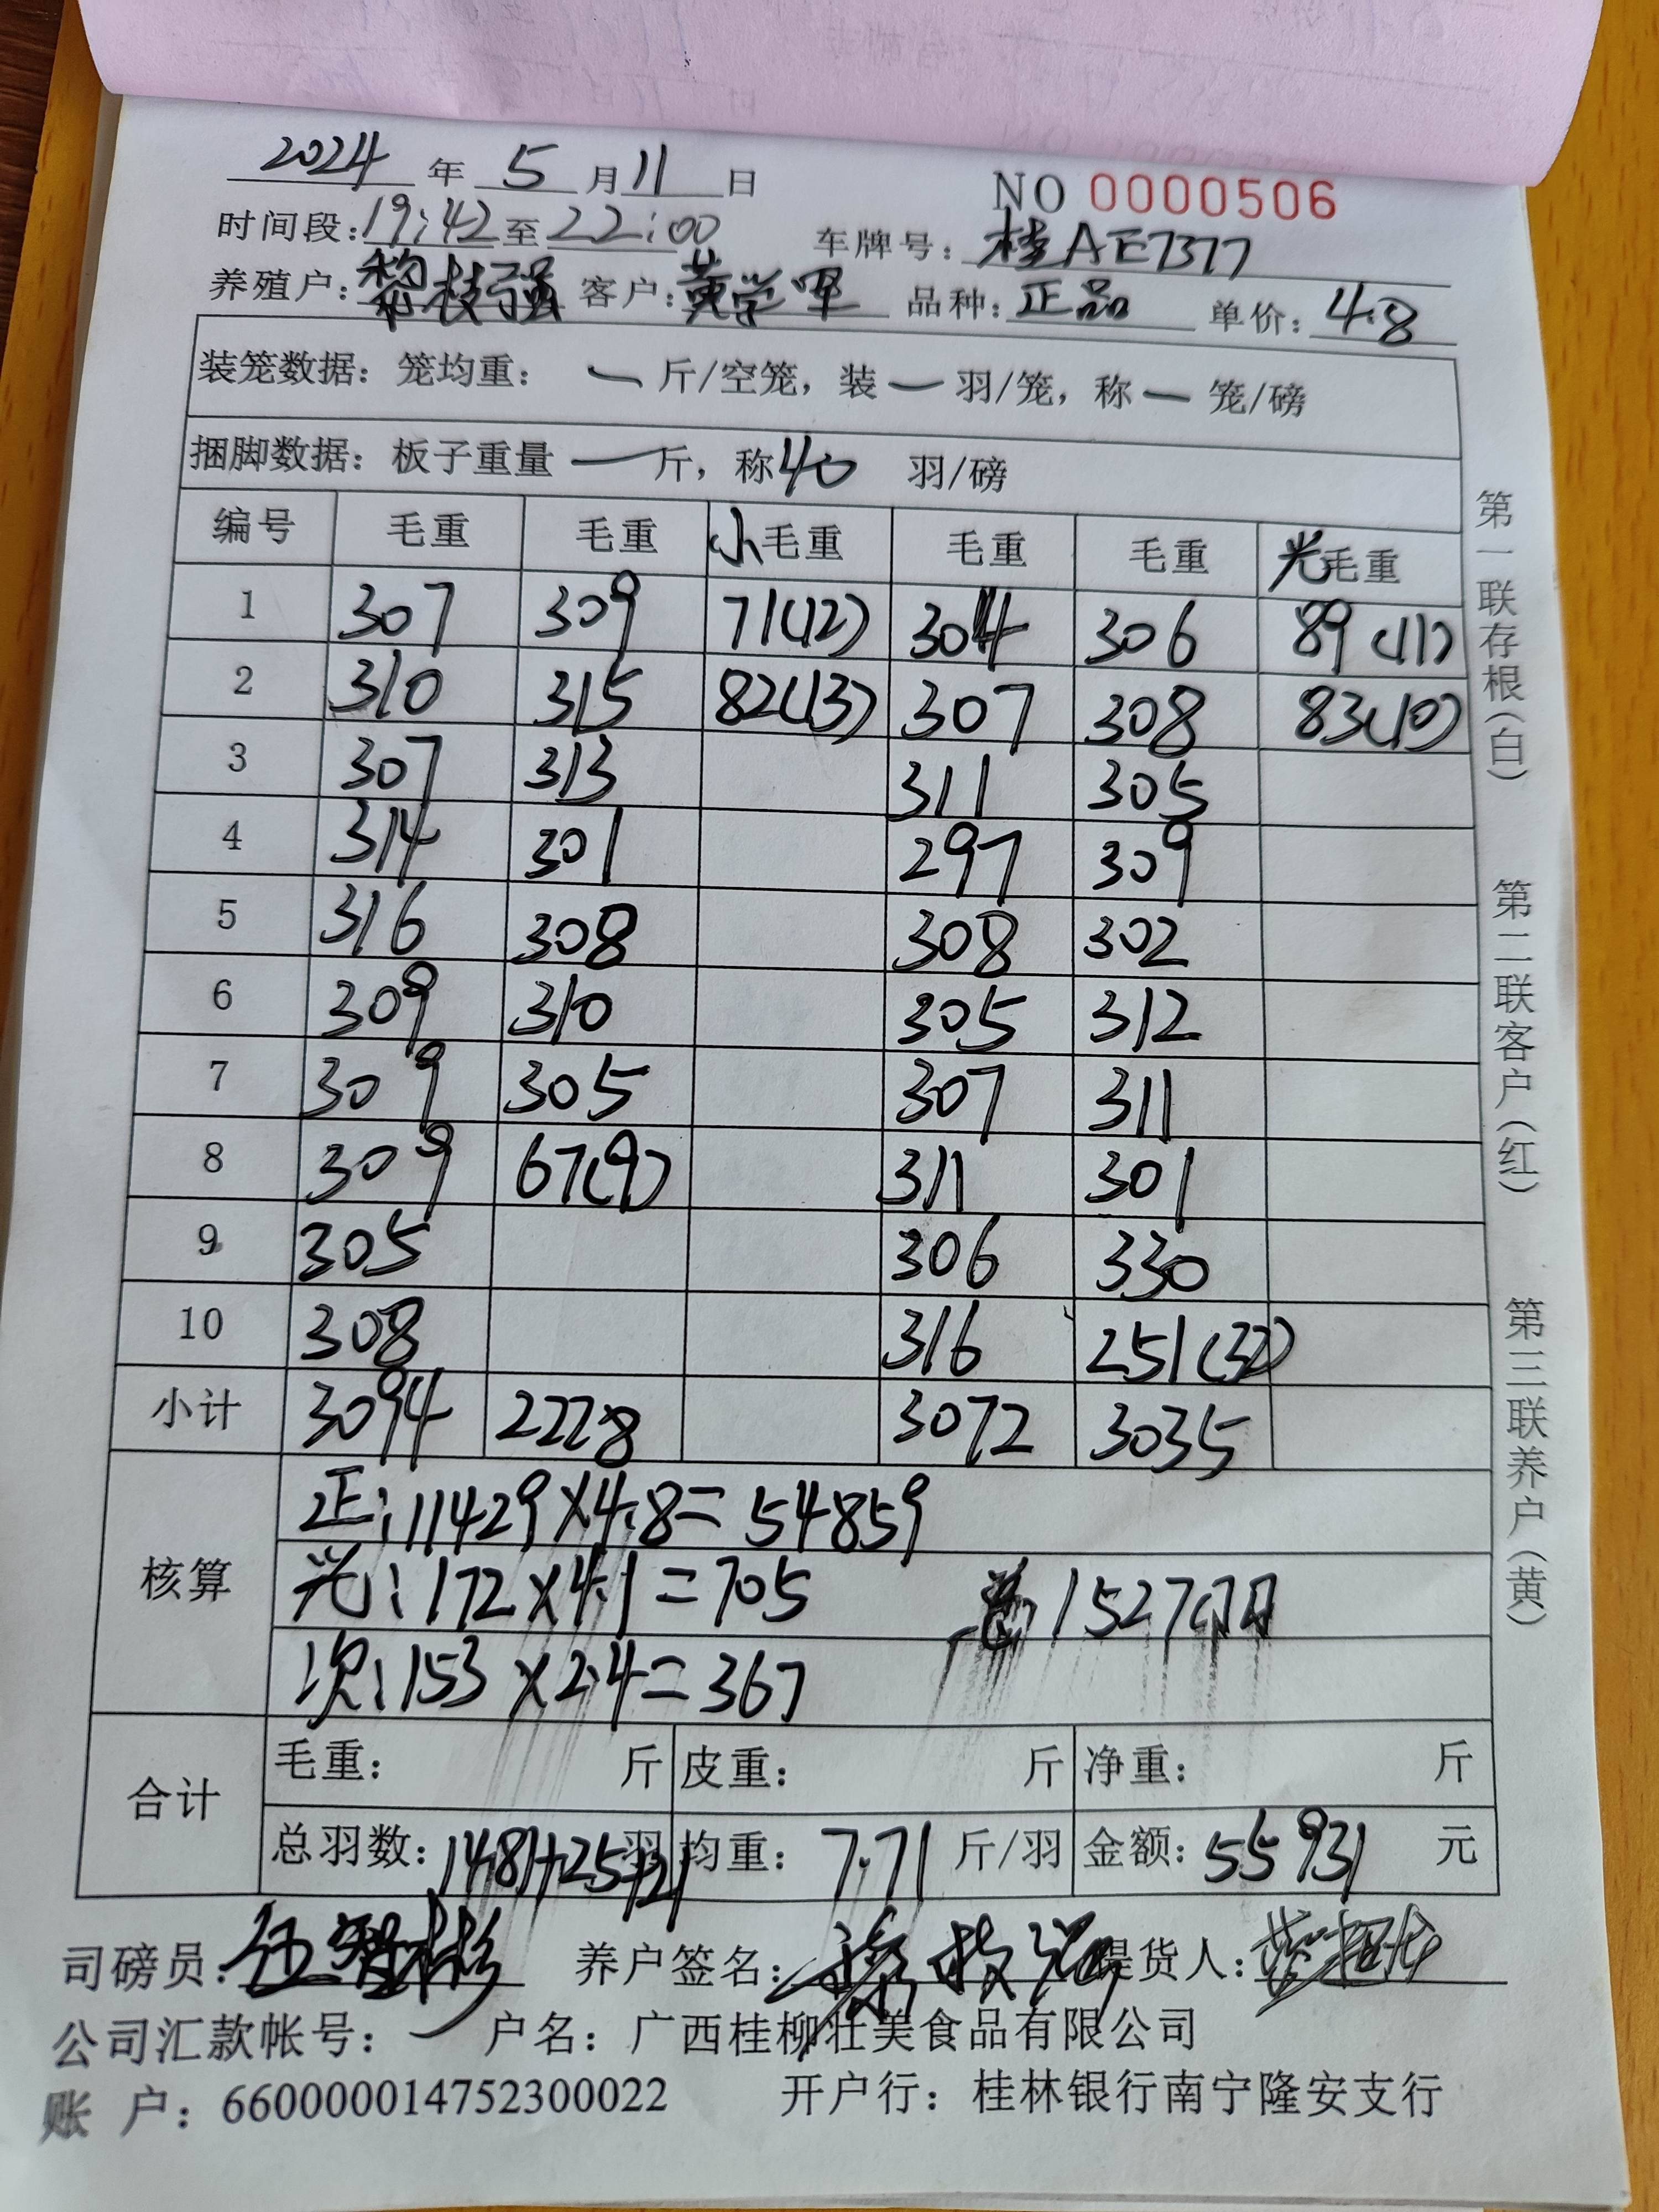 2024 年 5 月 11 日 NO 0000506
时间段: 19:42 至 22:00 车牌号: 桂AE7377
养殖户: 黎枝强 客户: 黄学军 品种: 正品 单价: 4.8
装笼数据: 笼均重: 一 斤/空笼, 装 一 羽/笼, 称 一 笼/磅
捆脚数据: 板子重量 一 斤, 称 40 羽/磅
编号 毛重 毛重 小毛重 毛重 毛重 光毛重
1 307 309 71(12) 304 306 89(11)
2 310 315 82(13) 307 308 83(10)
3 307 313 311 305
4 314 301 297 309
5 316 308 308 302
6 309 310 305 312
7 309 305 307 311
8 309 67(9) 311 301
9 305 306 330
10 308 316 251(32)
小计 3094 2228 3072 3035
核算 正:11429×4.8=54859
光:172×4.1=705 总1527羽
次:153×2.4=367
合计 毛重: 斤 皮重: 斤 净重: 斤
总羽数: 1481+25+21 羽 均重: 7.71 斤/羽 金额: 55931 元
司磅员: 养户签名: 提货人:
公司汇款帐号: 户名: 广西桂柳壮美食品有限公司
账 户: 660000014752300022 开户行: 桂林银行南宁隆安支行
第一联存根(白) 第二联客户(红) 第三联养户(黄)